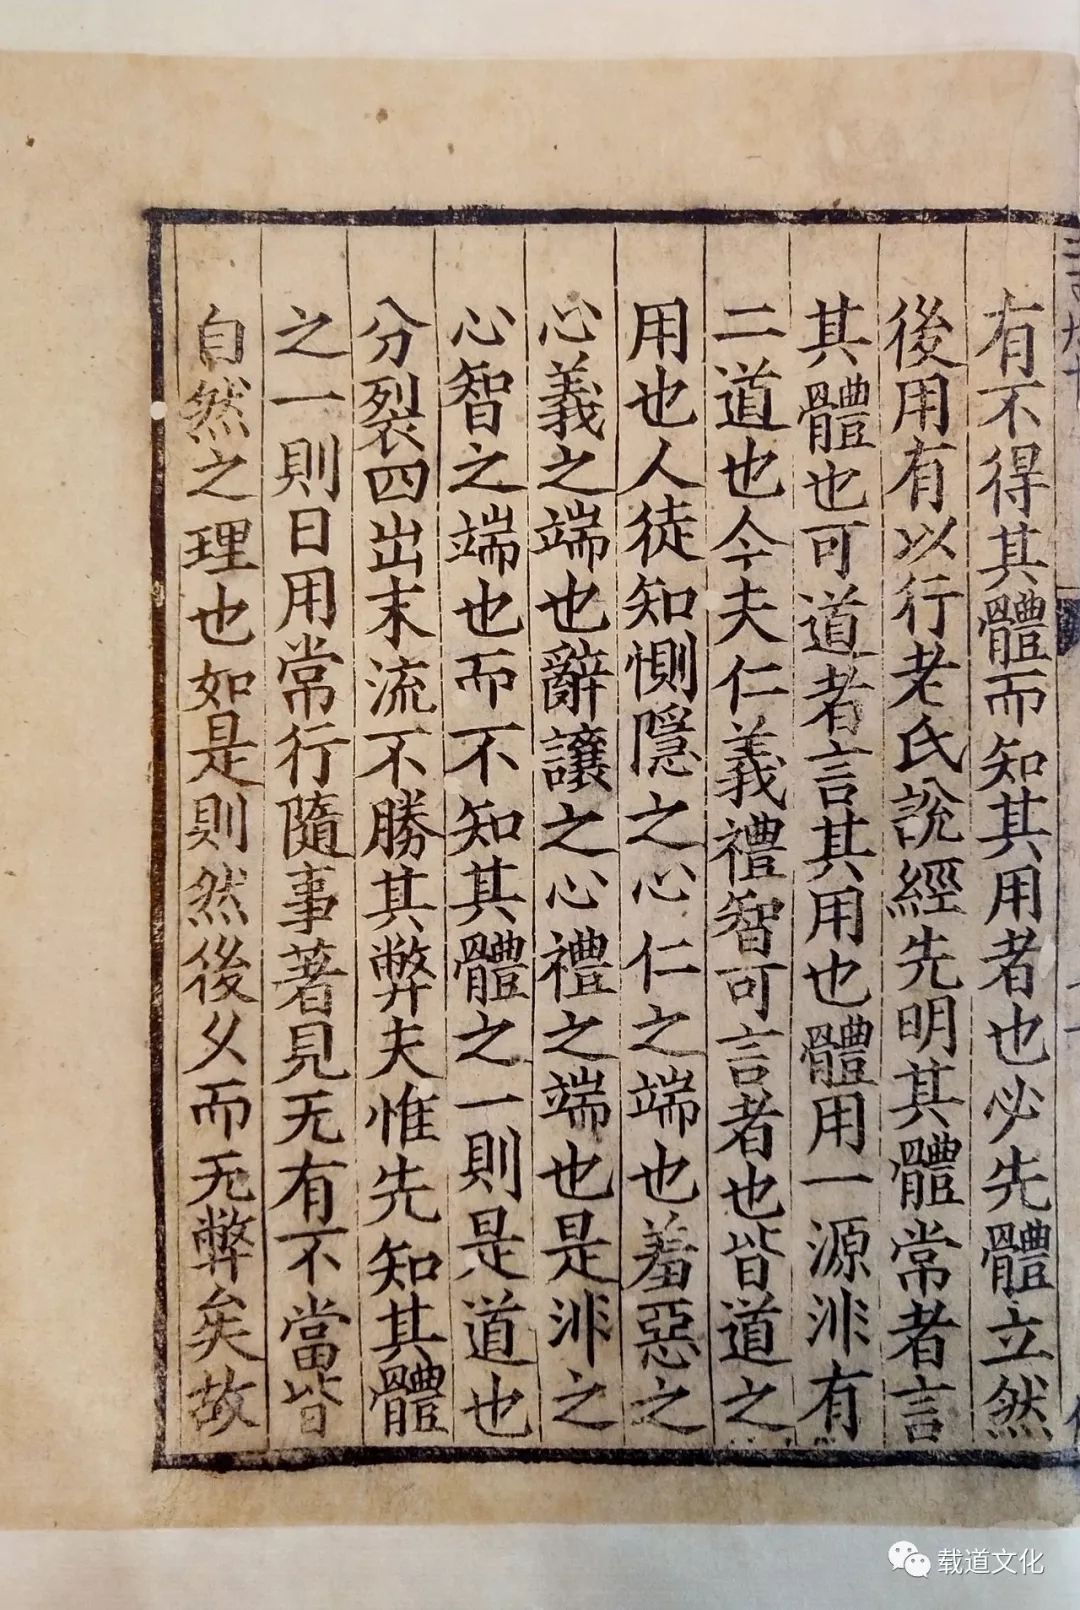 有不得其體而知其用者也必先體立然
後用有以行老氏說經先明其體常者言
其體也可道者言其用也體用一源非有
二道也今夫仁義禮智可言者也皆道之
用也人徒知惻隱之心仁之端也羞惡之
心義之端也辭讓之心禮之端也是非之
心智之端也而不知其體之一則是道也
分裂四出末流不勝其弊夫惟先知其體
之一則日用常行隨事著見无有不當皆
自然之理也如是則然後乂而无弊矣故
载道文化